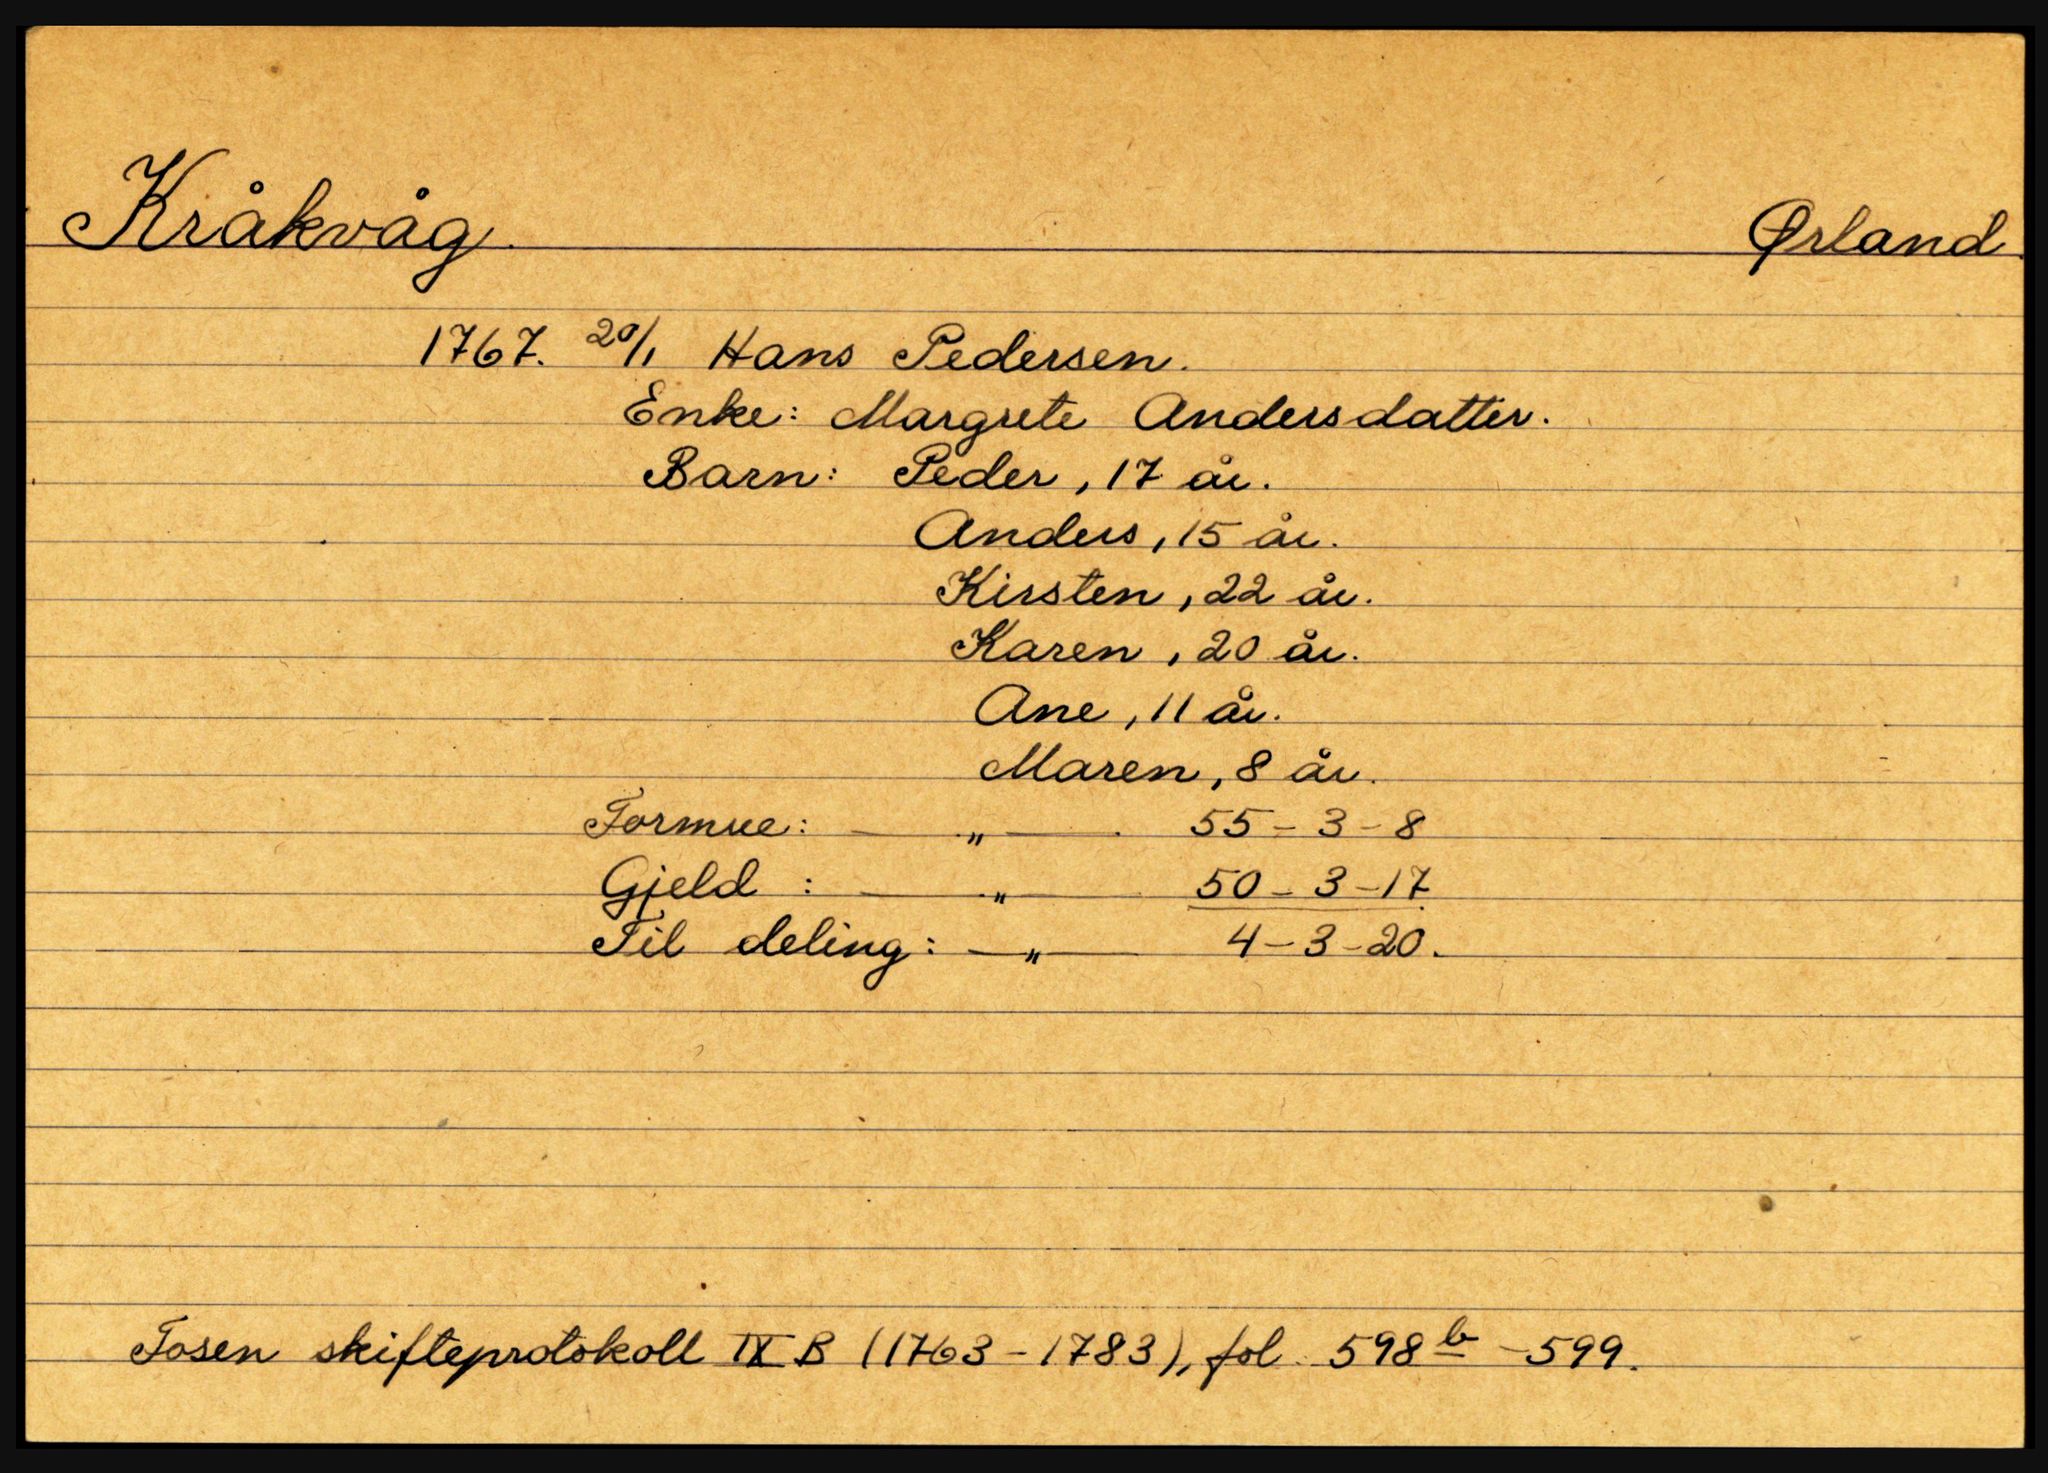 Kråkvåg. Ørland.
1767. 20/1 Hans Pedersen.
Enke: Margrete Andersdatter.
Barn: Peder, 17 år.
Anders, 15 år.
Kirsten, 22 år.
Karen, 20 år.
Ane, 11 år.
Maren, 8 år.
Formue: — „ — 55 - 3 - 8
Gjeld : — „ — 50 - 3 - 17
Til deling: — „ — 4 - 3 - 20.
Fosen skifteprotokoll IX B (1763 - 1783), fol. 598 b - 599.